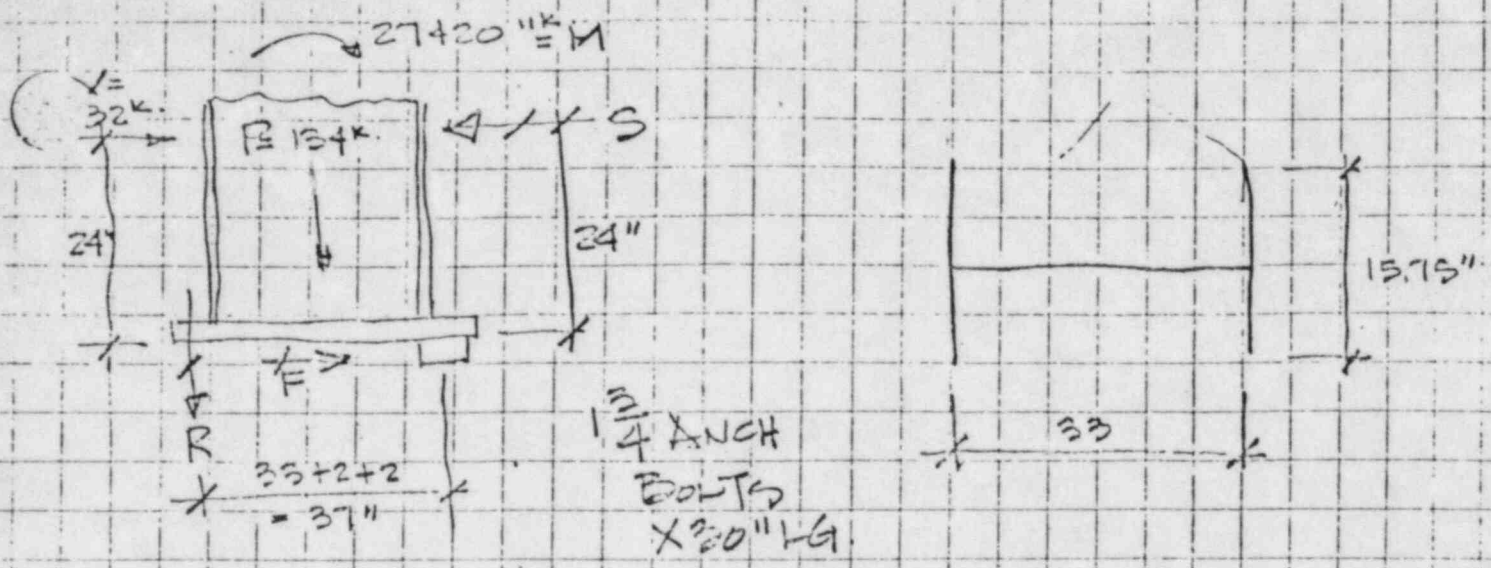 27420 "k = M
V =
32k.
P= 134k.
S
24"
24"
15.75"
F
R
33+2+2
= 37"
1 3/4 ANCH
BOLTS
X 30" LG.
33